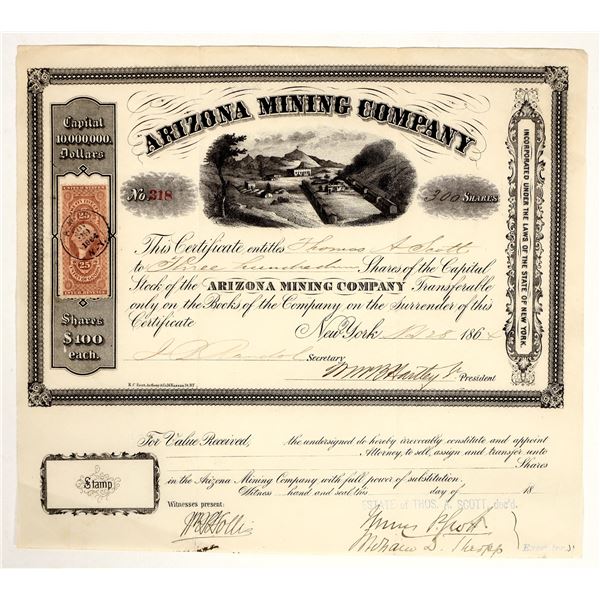 ARIZONA MINING COMPANY
Capital
10,000,000.
Dollars
No. 318
300 SHARES
INCORPORATED UNDER THE LAWS OF THE STATE OF NEW YORK.
25
25
Shares
$100
each.
This Certificate entitles Thomas A Scott
to Three hundred Shares of the Capital
Stock of the ARIZONA MINING COMPANY Transferable
only on the Books of the Company on the Surrender of this
Certificate
New York 28 1864
Secretary
Wm B Hartley Jr President
For Value Received, the undersigned do hereby irrevocably constitute and appoint
Attorney, to sell, assign and transfer unto
Shares
in the Arizona Mining Company with full power of substitution.
Stamp
Witness hand and seal this day of 18
ESTATE of THOS. A. SCOTT, dec'd.
Witnesses present: